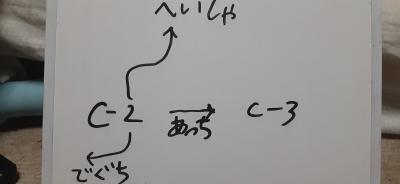 へいしゃ
C-2 → C-3
あっち
でぐち